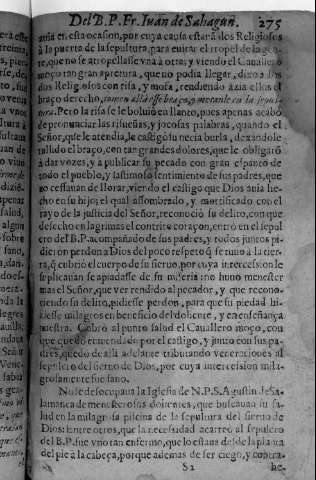 Del B. P. Fr. Iuan de Sahagun. 275
auia en esta ocasion, por cuya causa estarã dos Religiosos
à la puerta de la sepultura, para euitar el tropel de la gen-
te, que no se atropellasse vna à otra; y viendo el Cauallero
moço tan gran apretura, que no podia llegar, dixo a los
dos Religiosos con risa, y mofa, tendiendo àzia ellos el
braço derecho, tomen allà esse braço, y metanle en la sepul-
tura. Pero la risa se le boluiò en llanto, pues apenas acabò
de pronunciar las risueñas, y jocosas palabras, quando el
Señor, que le atendia, le castigò su necia burla, dexandole
tullido el braço, con tan grandes dolores, que le obligarõ
à dar vozes, y à publicar su pecado con gran espanto de
todo el pueblo, y lastimoso sentimiento de sus padres, que
no cessauan de llorar, viendo el castigo que Dios auia he-
cho en su hijo; el qual assombrado, y mortificado con el
rayo de la justicia del Señor, reconociò su delito, con que
deshecho en lagrimas el contrito coraçon, entrò en el sepul-
cro del B. P. acompañado de sus padres, y todos juntos pi-
dieron perdon à Dios del poco respeto q̃ se tuuo à la tier-
ra, q̃ cubriò el cuerpo de su sieruo, por cuya intercession le
suplicauan se apiadasse de su miseria: no huuo menester
mas el Señor, que ver rendido al pecador, y que recono-
ciendo su delito, pidiesse perdon, para que su piedad hi-
ziesse milagros en beneficio del doliente, y en enseñança
nuestra. Cobrò al punto salud el Cauallero moço, con
que quedò enmendado por el castigo, y junto con sus pa-
dres, quedò de allì adelante tributando veneraciones al
sepulcro del sieruo de Dios, por cuya intercession mila-
grosamente fue sano.
No se desocupaua la Iglesia de N. P. S. Agustin de Sa-
lamanca de menesterosos dolientes, que buscauan su sa-
lud en la milagrosa piscina de la sepultura del sieruo de
Dios: Entre otros, que la necessidad acarreò al sepulcro
del B. P. fue vno tan enfermo, que lo estaua desde la planta
del pie à la cabeça, porque ademas de ser ciego, y contra-
S 2 he-